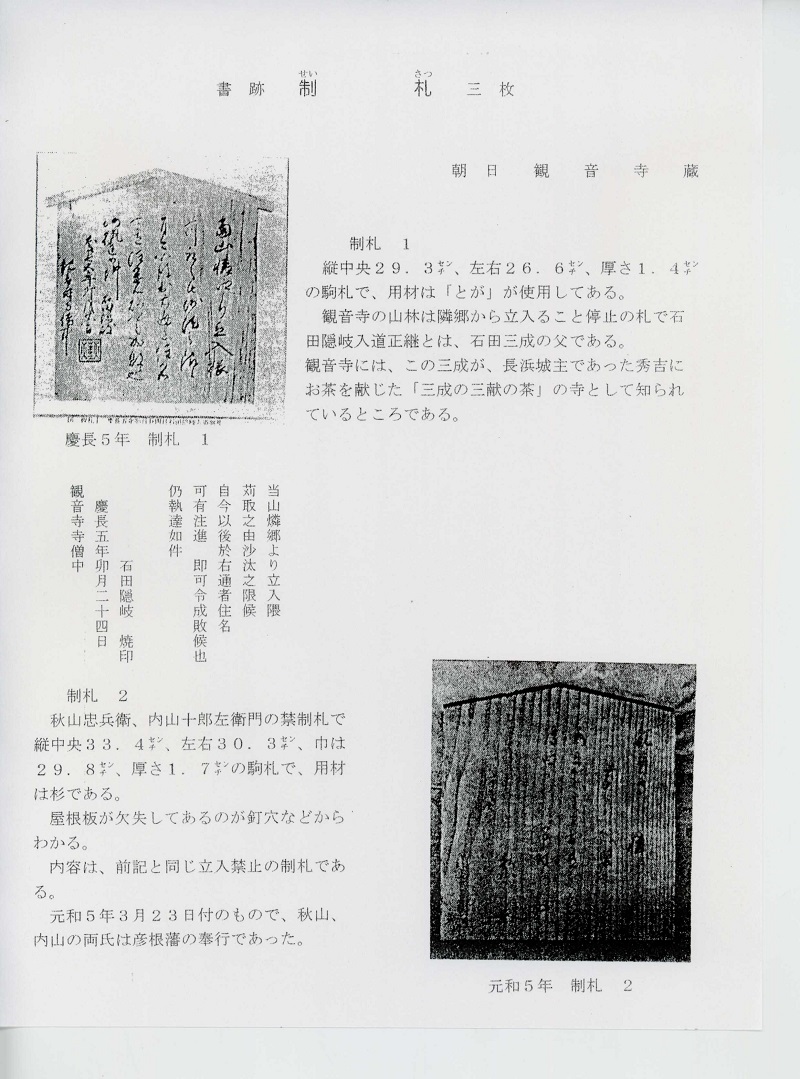 書跡 制札 三枚
せい さつ
朝日観音寺蔵
制札 1
縦中央29.3㌢、左右26.6㌢、厚さ1.4㌢
の駒札で、用材は「とが」が使用してある。
観音寺の山林は隣郷から立入ること停止の札で石
田隠岐入道正継とは、石田三成の父である。
観音寺には、この三成が、長浜城主であった秀吉に
お茶を献じた「三成の三献の茶」の寺として知られ
ているところである。
慶長5年 制札 1
当山燐郷より立入隈
苅取之由沙汰之限候
自今以後於右通者住名
可有注進 即可令成敗候也
仍執達如件
石田隠岐 焼印
慶長五年卯月二十四日
観音寺寺僧中
制札 2
秋山忠兵衛、内山十郎左衛門の禁制札で
縦中央33.4㌢、左右30.3㌢、巾は
29.8㌢、厚さ1.7㌢の駒札で、用材
は杉である。
屋根板が欠失してあるのが釘穴などから
わかる。
内容は、前記と同じ立入禁止の制札であ
る。
元和5年3月23日付のもので、秋山、
内山の両氏は彦根藩の奉行であった。
元和5年 制札 2